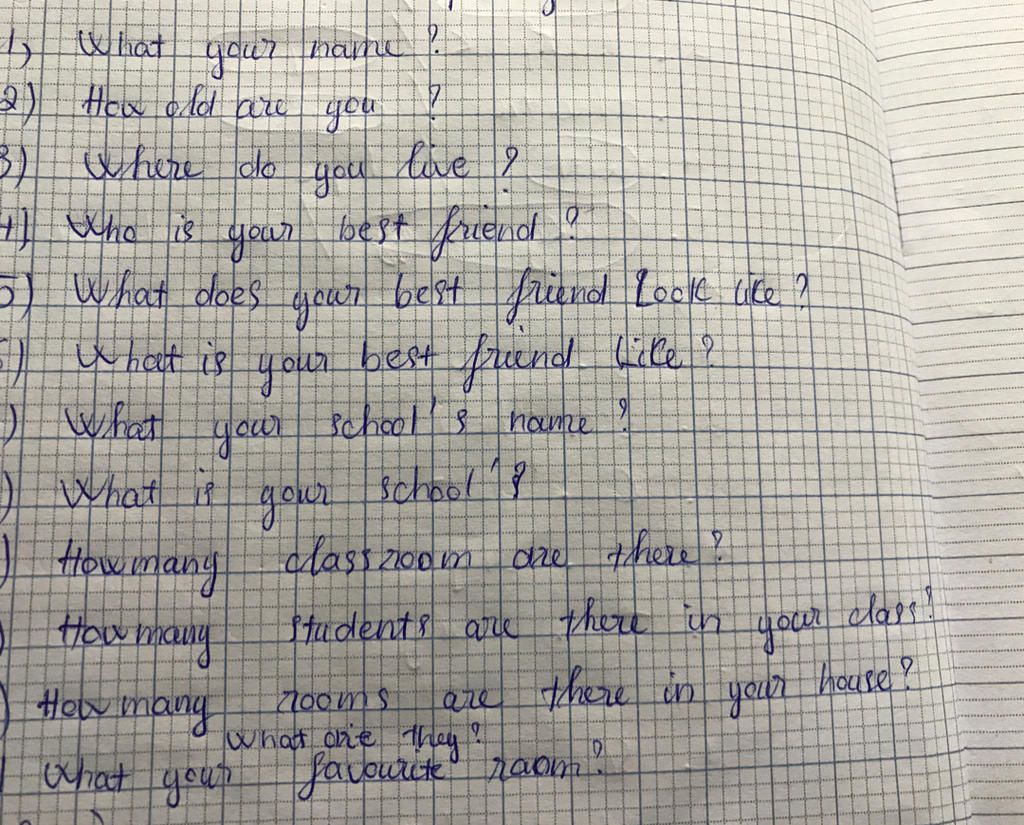 1) What your name ?
2) How old are you ?
3) Where do you live ?
4) Who is your best friend ?
5) What does your best friend look like ?
) What is your best friend like ?
) What your school's name ?
) What is your school's
) How many classroom are there ?
) How many students are there in your class ?
) How many rooms are there in your house ?
What are they ?
What your favourite room ?